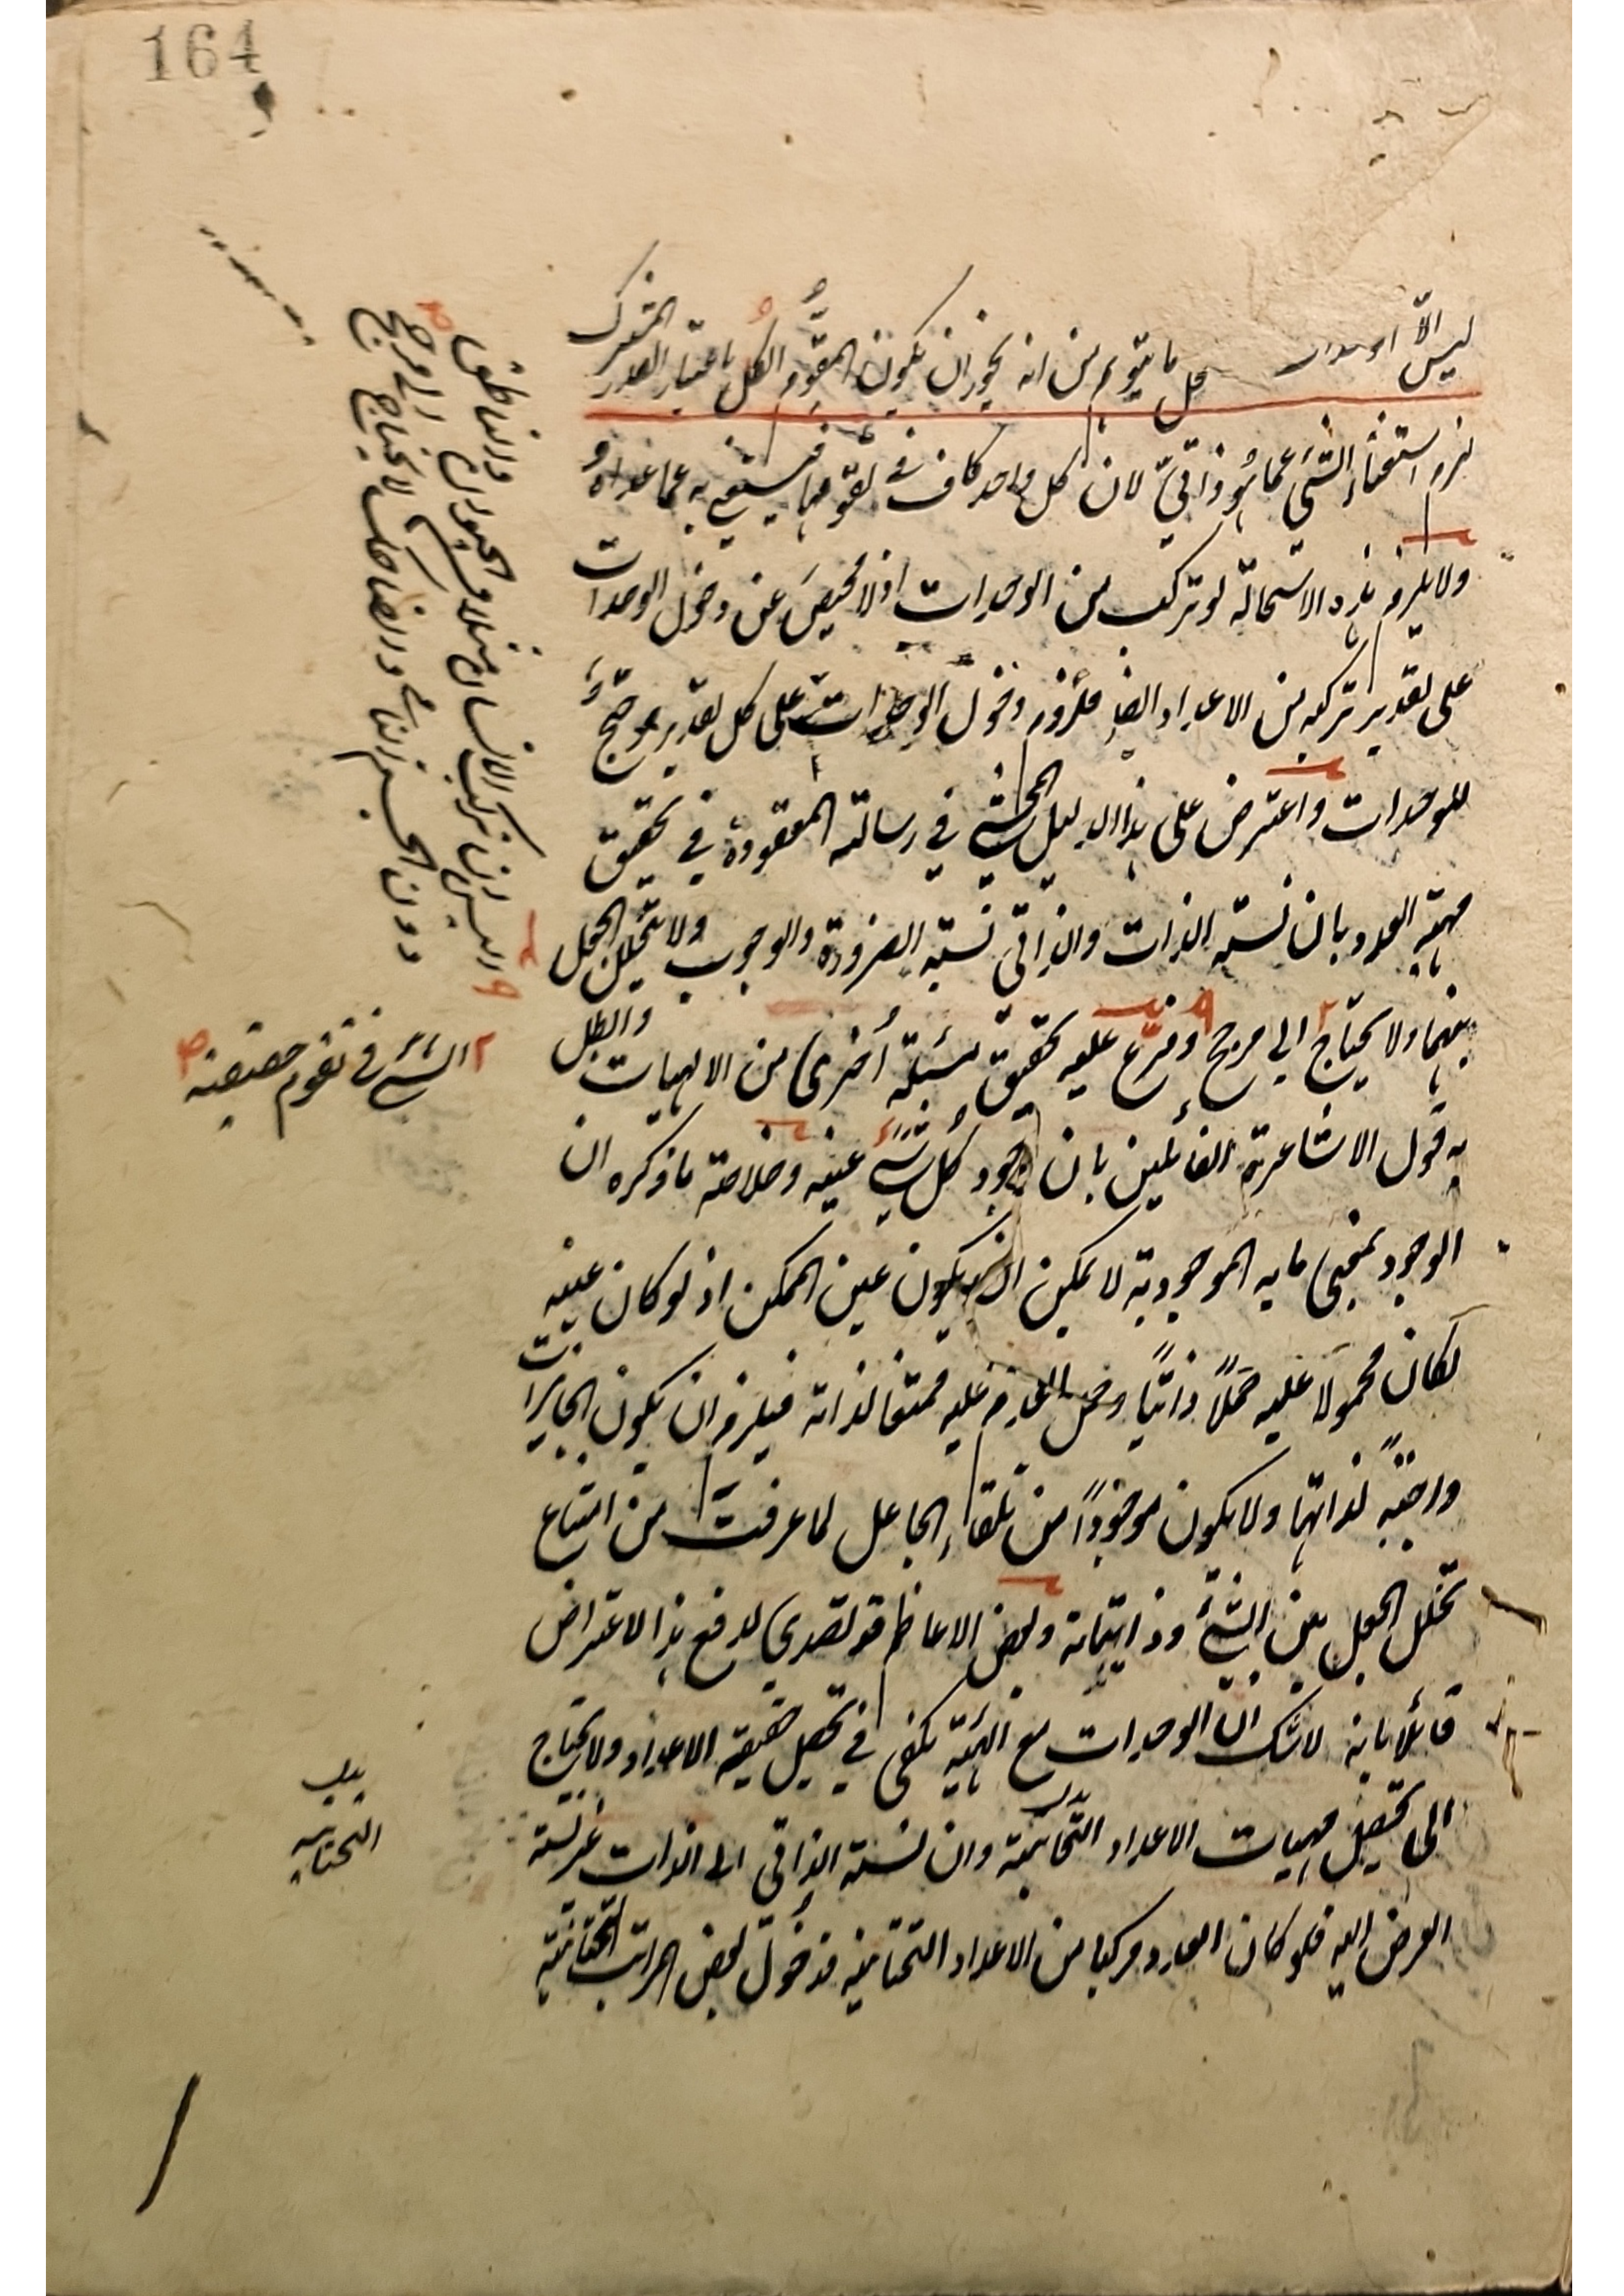 164
ليس الّا الوحدات كل ما يتوهم من انه يجوز ان يكون المقوّم الكل باعتبار القدر المشترك
لزم استغناء الشيء عما هو ذاتيّ لان كل واحد كاف في تقوّمها فيستغني به عما عداه و
ولا يلزم هذه الاستحالة لو تركب من الوحدات اذ لا محيص عن دخول الوحدات
على تقدير تركبه من الاعداد ايضا فلزوم دخول الوحدات على كل تقدير مرجّح
للوحدات واعترض على هذا الدليل المحشي في رسالته المعقودة في تحقيق
مهية العدد بان نسبة الذات والذاتي نسبة الضرورة والوجوب ولا يتخلل الجعل
بينهما ولا يحتاج الى مرجح وفرّع عليه تحقيق مسئلة أخرى من الالهيات وابطل
به قول الاشاعرة القائلين بان وجود كل شيء عينه وخلاصة ما ذكره ان
الوجود بمعنى ما به الموجودية لا يمكن ان يكون عين الممكن اذ لو كان عينه
لكان محمولا عليه حملًا ذاتيًا وحمل العدم عليه ممتنعا لذاته فيلزم ان يكون الجايزات
واجبةً لذاتها ولا يكون موجودًا من تلقاء الجاعل لما عرفت من امتناع
تخلل الجعل بين الشيء وذاتياته وبعض الاعاظم قد تصدى لدفع هذا الاعتراض
قائلا بانه لا شك ان الوحدات مع الهيئة يكفى في تحصيل حقيقة الاعداد ولا يحتاج
الى تحصيل مهيات الاعداد التحتانية وان نسبة الذاتي الى الذات غير نسبة
العرض اليه فلو كان العدد مركبا من الاعداد التحتانية فدخول بعض المراتب التحتانية
و ليس ان تركب الانسان مثلا من الحيوان والناطق
دون الجسم النامي والضاحك لا يحتاج الى مرجح
٢ الشيء في تقوم حقيقته
بدل
التحتانية